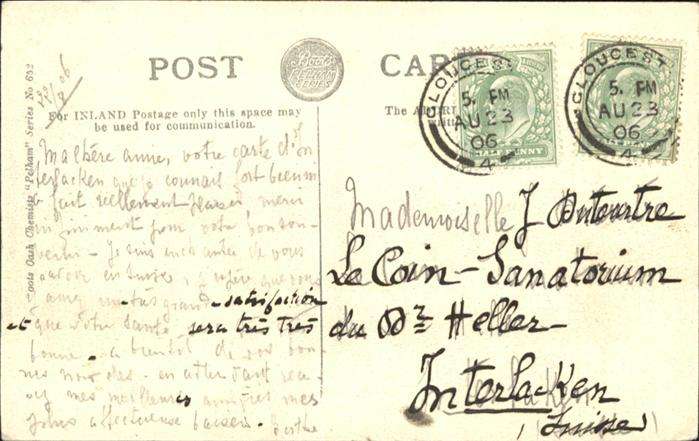 POST CARD
Boots Cash Chemists "Pelham" Series No 632
For INLAND Postage only this space may
be used for communication.
The
22/8 06
GLOUCESTER
5. PM
AU 23
06
4
GLOUCESTER
5. PM
AU 23
06
HALF PENNY
Ma chère amie, votre carte d'In
terlacken que je connais fort bien m'
a fait réellement plaisir merci
pour votre bon sou-
venir - Je suis enchantée de vous
savoir en Suisse, j'espère que vous
grand satisfaction
et que votre santé sera très très
bonne - à bientôt de vos bon-
nes nouvelles - en attendant rece-
vez mes meilleures amitiés mes
plus affectueux baisers. Berthe
Mademoiselle J Dutourtre
Le Coin - Sanatorium
du Dr Heller -
Interlacken
(Suisse)